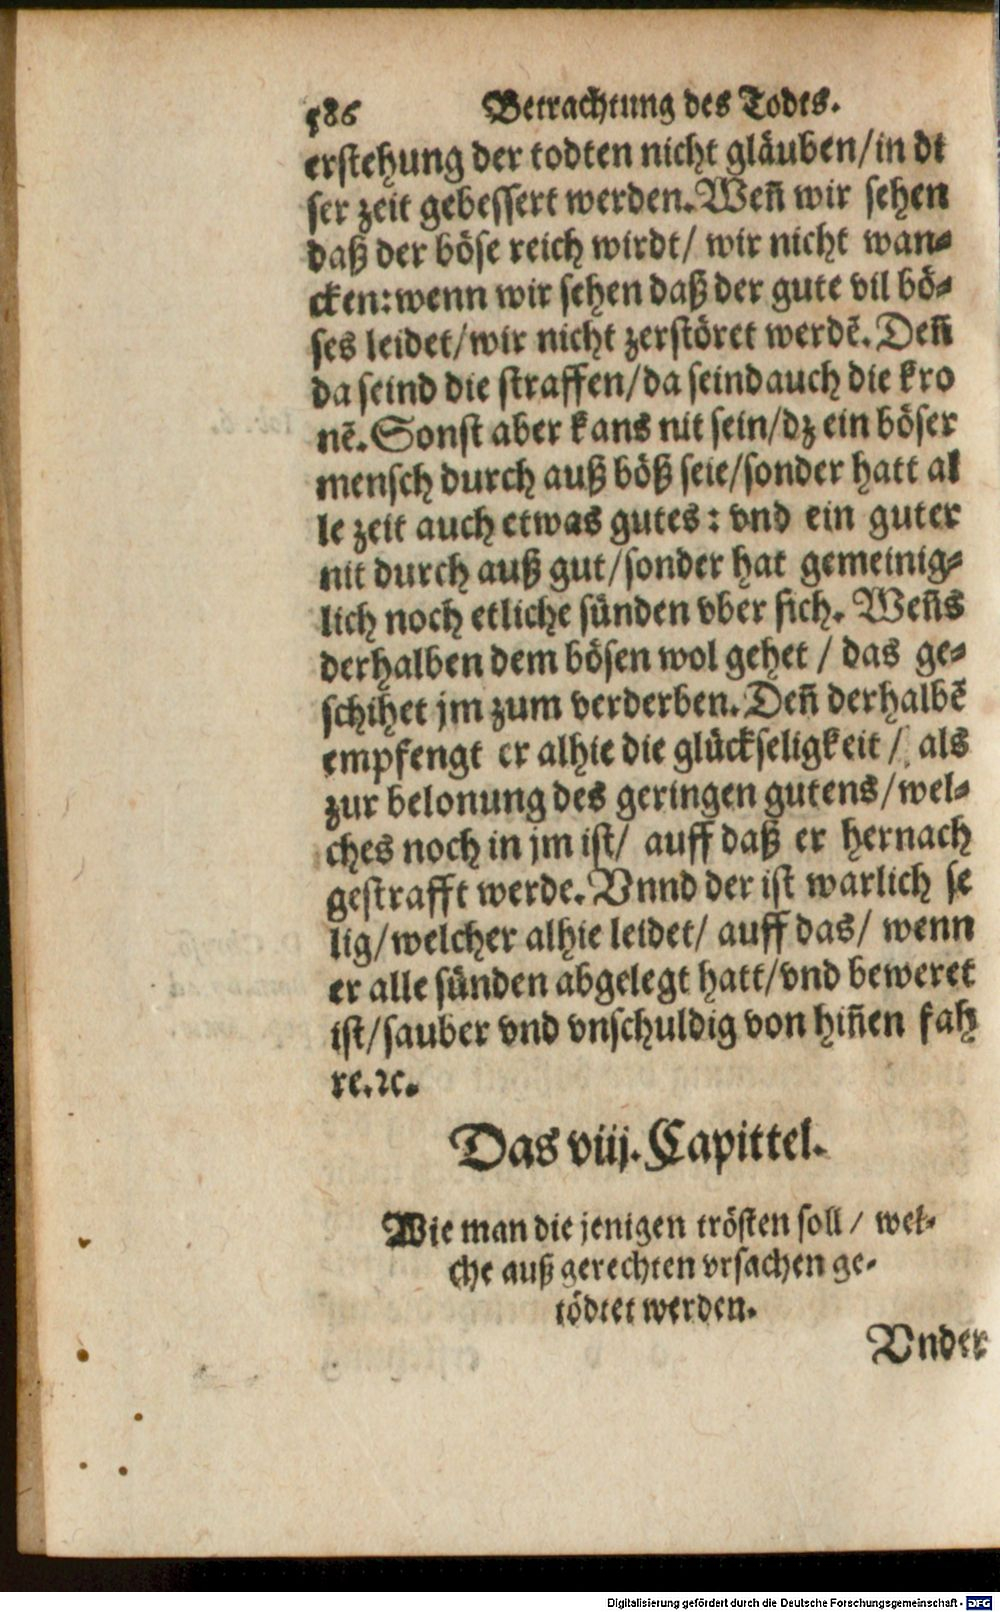 586 Betrachtung des Todts.
erstehung der todten nicht gläuben/in di
ser zeit gebessert werden. Weñ wir sehen
daß der böse reich wirdt/ wir nicht wan-
cken: wenn wir sehen daß der gute vil bö-
ses leidet/wir nicht zerstöret werdẽ. Deñ
da seind die straffen/da seind auch die kro
nẽ. Sonst aber kans nit sein/dz ein böser
mensch durch auß böß seie/sonder hatt al
le zeit auch etwas gutes: vnd ein guter
nit durch auß gut/sonder hat gemeinig-
lich noch etliche sünden vber sich. Weñs
derhalben dem bösen wol gehet / das ge-
schihet jm zum verderben. Deñ derhalbẽ
empfengt er alhie die glückseligkeit / als
zur belonung des geringen gutens/wel-
ches noch in jm ist/ auff daß er hernach
gestrafft werde. Vnnd der ist warlich se
lig/welcher alhie leidet/ auff das/ wenn
er alle sünden abgelegt hatt/vnd beweret
ist/sauber vnd vnschuldig von hiñen fah
re.ꝛc.
Das viij. Capittel.
Wie man die jenigen trösten soll / wel-
che auß gerechten vrsachen ge-
tödtet werden.
Vnder
Digitalisierung gefördert durch die Deutsche Forschungsgemeinschaft - DFG